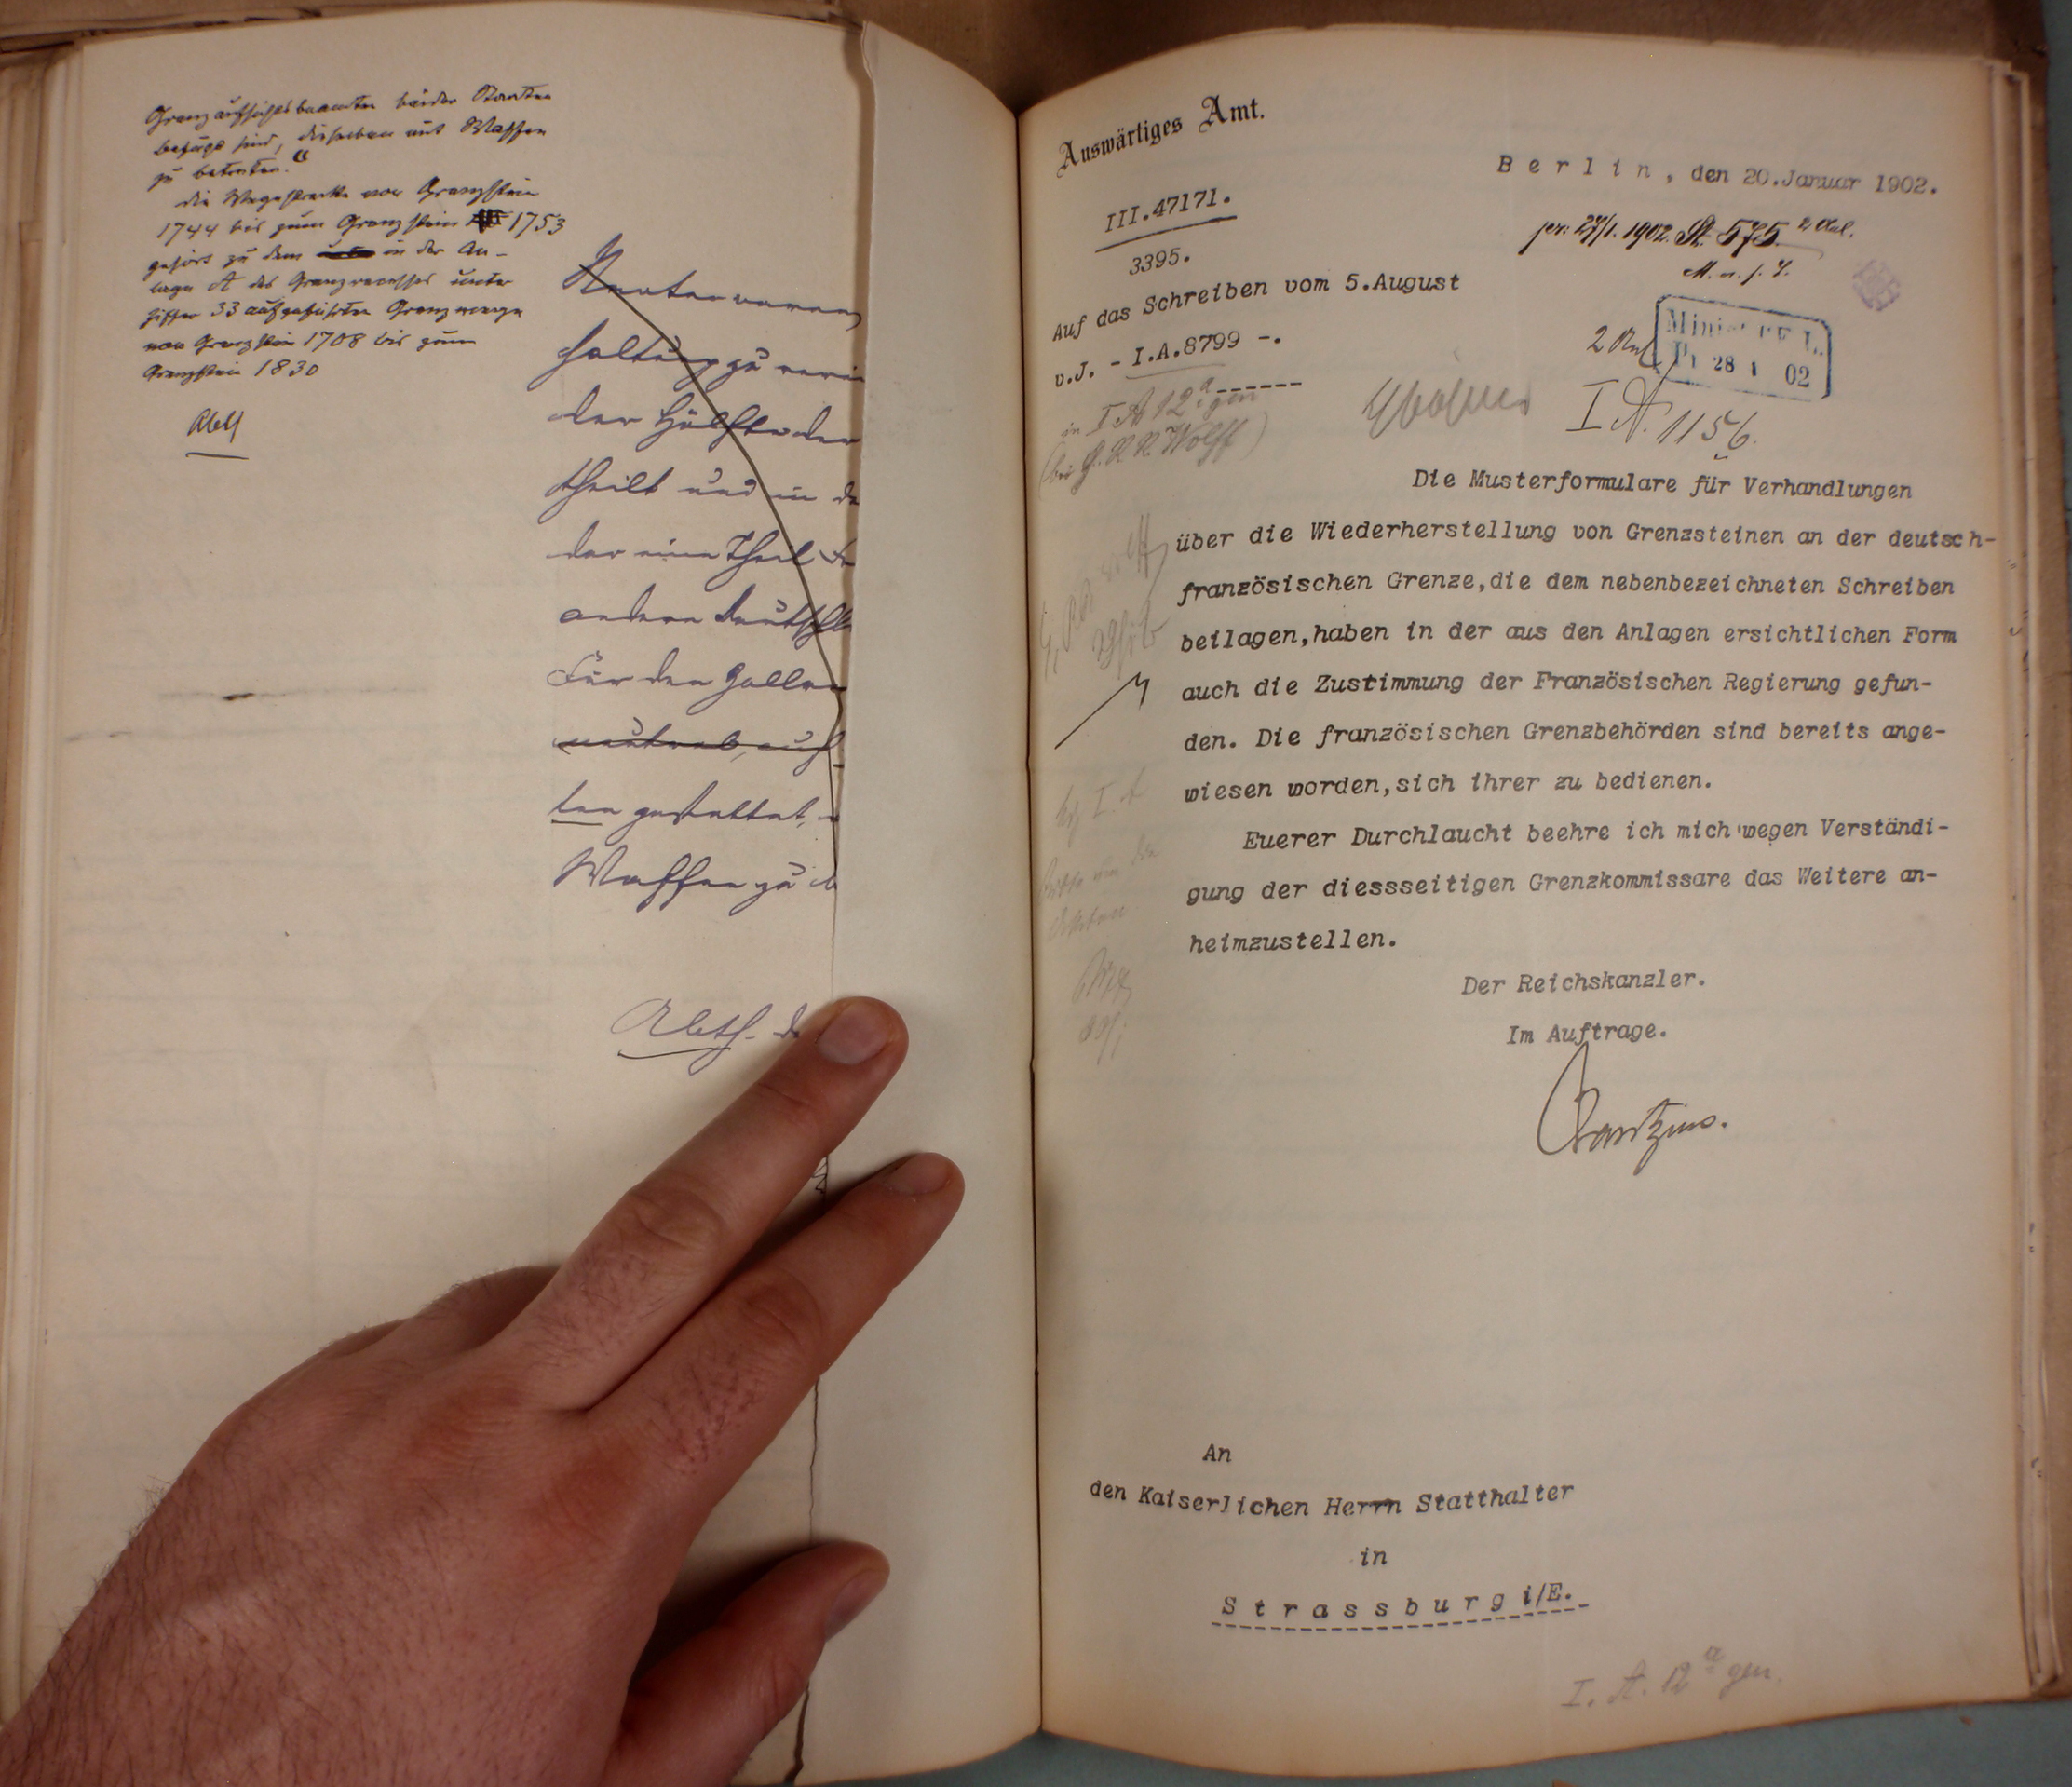 Grenzaufsichtsbeamten beider Staaten
befugt sind, dieselben mit Waffen
zu betreten."
die Wegestrecke von Grenzstein
1744 bis zum Grenzstein 1753
gehört zu dem in der An-
lage A des Grenzrecesses unter
Ziffer 33 aufgeführten Grenzwege
von Grenzstein 1708 bis zum
Grenzstein 1830
haltung zu
der Hälfte der
theilt und in
der eine Theil
andere Deutschl
Für den
neutral, auf
ten gestattet,
Waffen zu
Auswärtiges Amt.
Berlin, den 20.Januar 1902.
III.47171.
3395.
pr: 27/1. 1902. St. 575. 2 Anl.
Auf das Schreiben vom 5.August
v.J. - I.A.8799 -.
2 Anl
Pr 28 1 02
in I A 12 a gen
(bei G. R. R. Wolff)
I A. 1156.
Die Musterformulare für Verhandlungen
über die Wiederherstellung von Grenzsteinen an der deutsch-
französischen Grenze,die dem nebenbezeichneten Schreiben
beilagen,haben in der aus den Anlagen ersichtlichen Form
auch die Zustimmung der Französischen Regierung gefun-
den. Die französischen Grenzbehörden sind bereits ange-
wiesen worden,sich ihrer zu bedienen.
Euerer Durchlaucht beehre ich mich wegen Verständi-
gung der diessseitigen Grenzkommissare das Weitere an-
heimzustellen.
Der Reichskanzler.
Im Auftrage.
An
den Kaiserlichen Herrn Statthalter
in
Strassburg i/E.
I. A. 12 a gen.